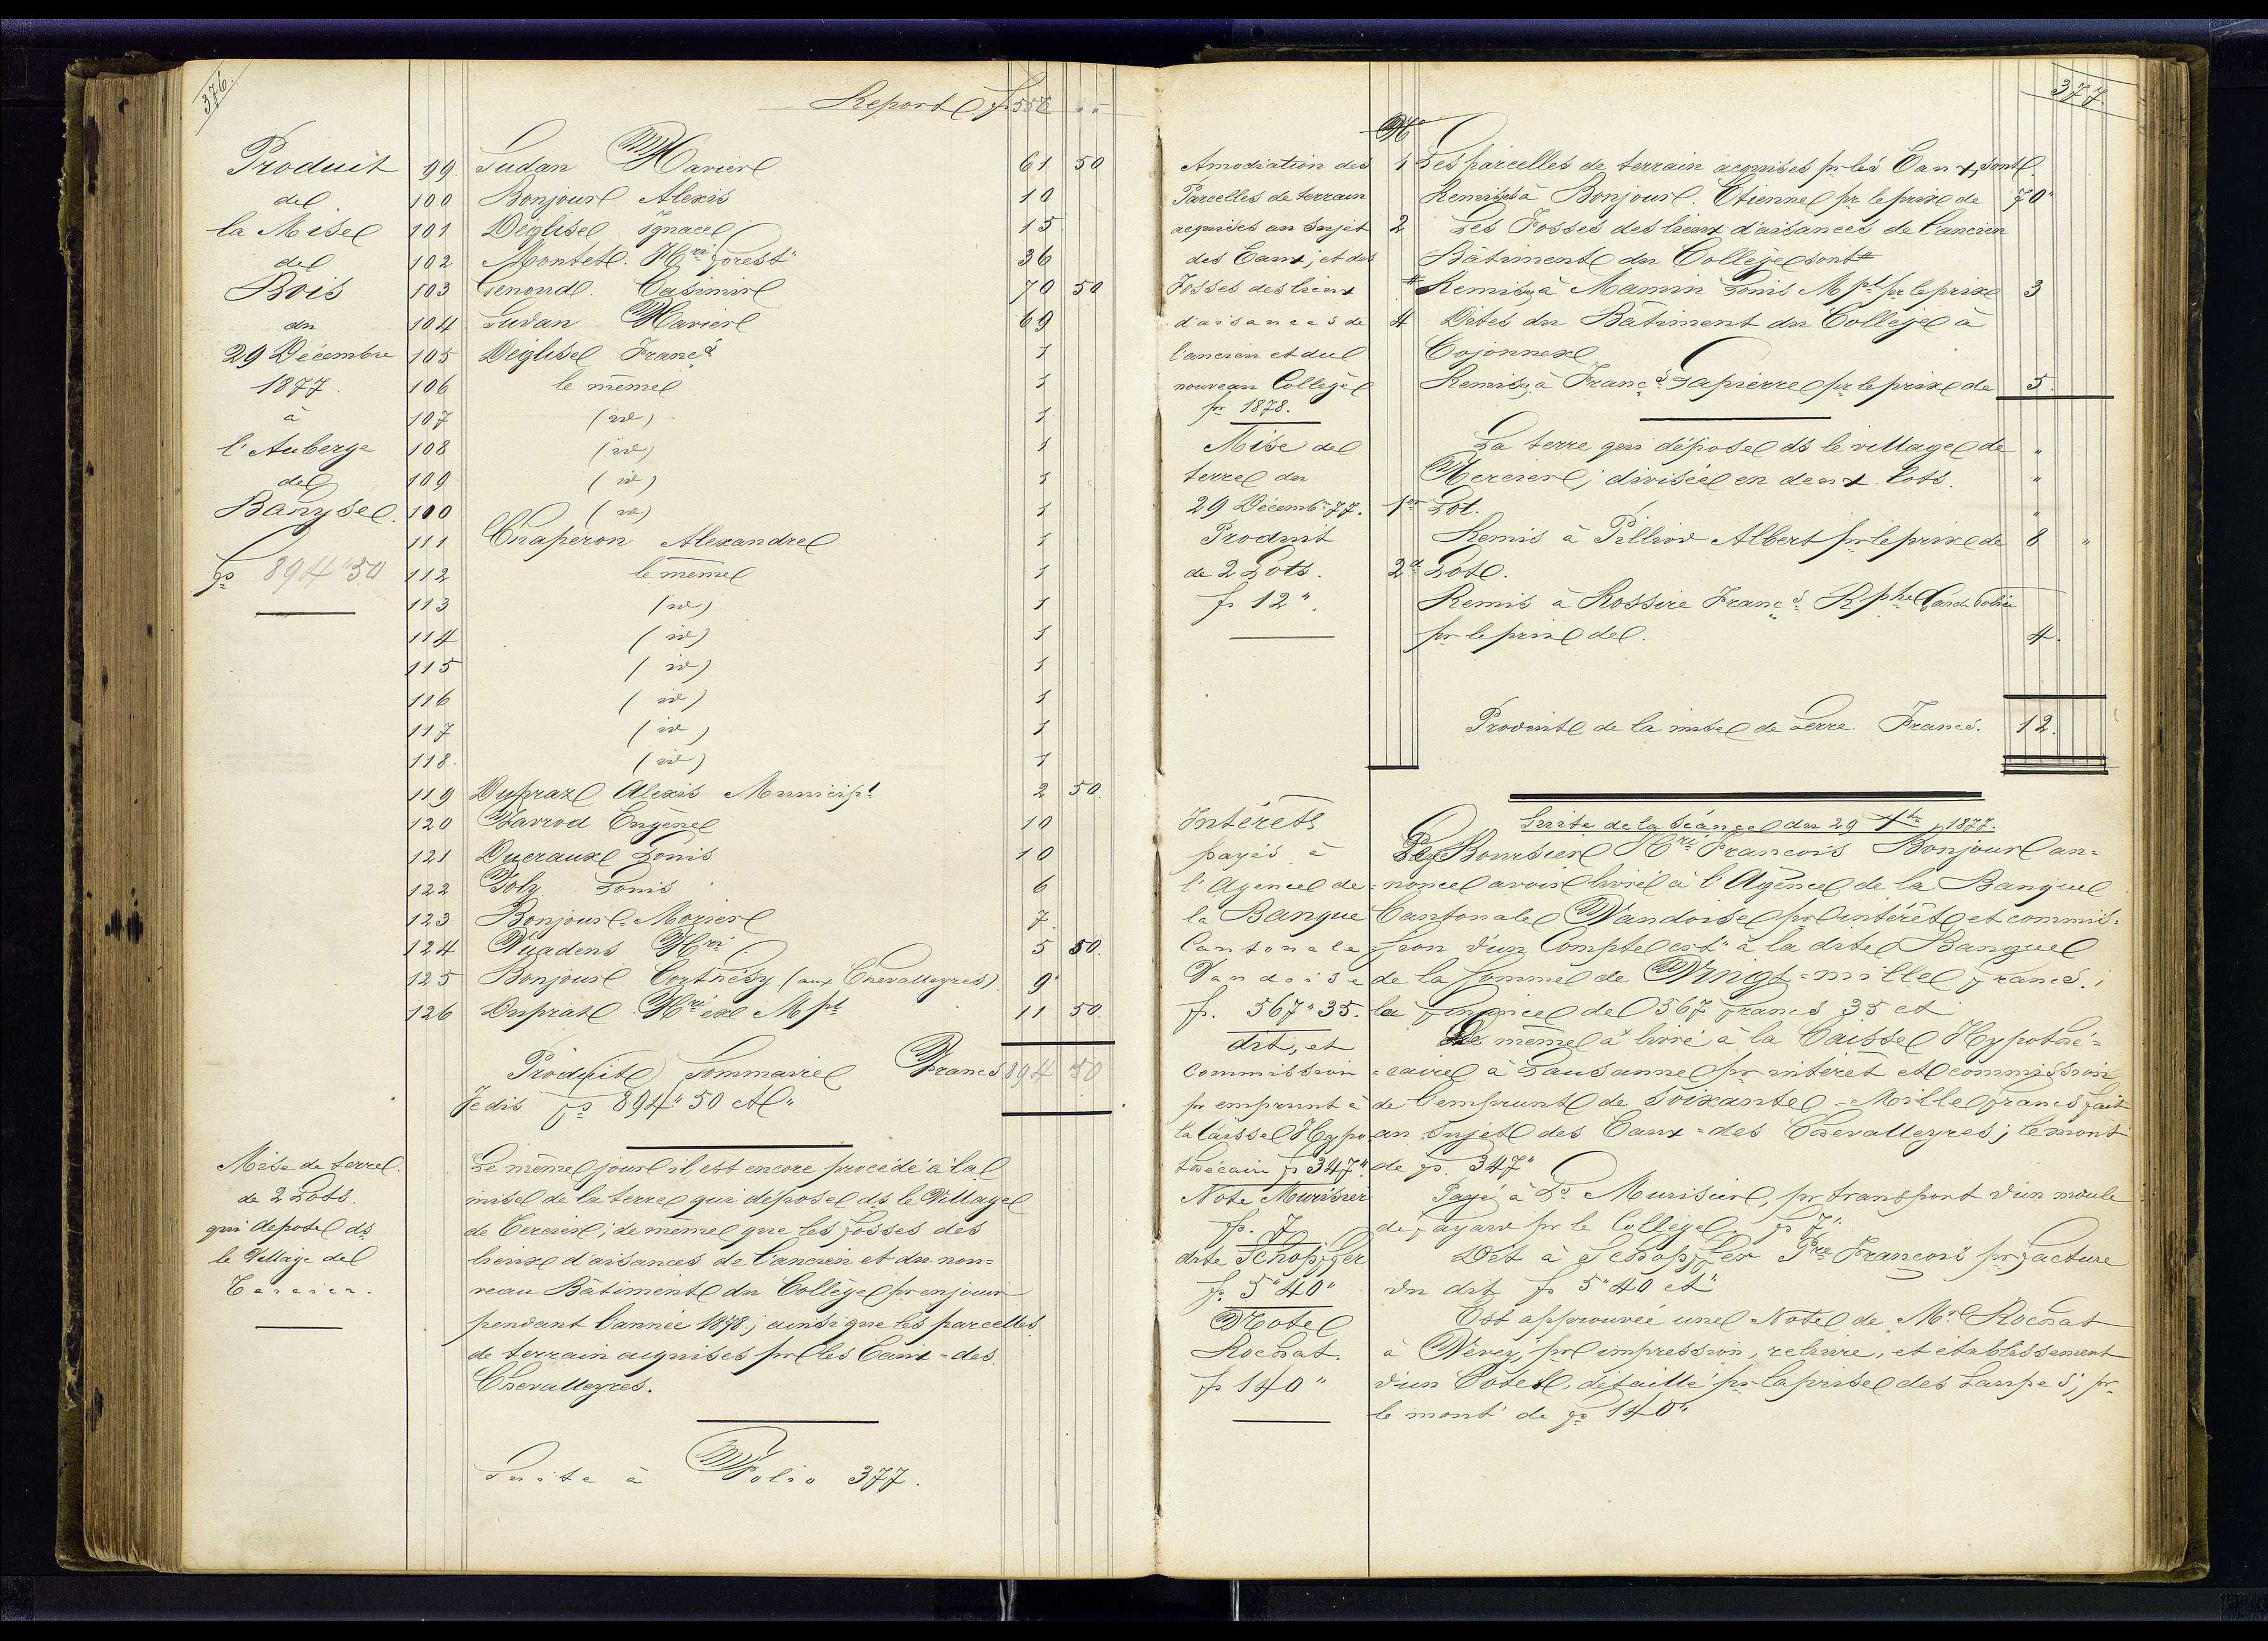 376.
Report fs 557 " "
Produit
de
la Mise
de
Bois
du
29 Décembre
1877.
à
l'Auberge
de
Bahyse.
fs 894 " 50
99 Sudan Xavier 61 50
100 Bonjour Alexis 10
101 Déglise Ignace 15
102 Montet. Hri forest" 36
103 Genoud. Casimir 70 50
104 Sudan Xavier 69
105 Déglise Françs 1
106 le même 1
107 (id) 1
108 (id) 1
109 (id) 1
100 (id) 1
111 Chaperon Alexandre 1
112 le même 1
113 (id) 1
114 (id) 1
115 (id) 1
116 (id) 1
117 (id) 1
118. (id) 1
119 Dupraz Alexis Municipl 2 50
120 Favrod Eugène 10
121 Ducraux Louis 10
122 Joly Louis 6
123 Bonjour-Morier 7.
124 Vuadens Hri. 5 50.
125 Bonjour. Cortnésy (aux Chevalleyres). 9"
126 Dupraz Hri ex Mpl 11 50
Produit Sommaire Francs 894 50
Je dis fs 894 " 50 ct "
Mise de terre.
de 2 Lots.
qui dépose ds
le Village de
Cercier.
Le même jour il est encore procédé à la
mise de la terre qui dépose ds le Village
de Cercier; de même que les fosses des
lieux d'aisances de l'ancien et du nou=
veau Bâtiment du Collège pr en jouir
pendant l'année 1878.; ainsi que les parcelles
de terrain acquises pr les Eaux = des
Chevalleyres.
Suite à Folio 377.
377.
No
Amodiation des
Parcelles de terrain
acquises au sujet
des Eaux; et des
Fosses des lieux
d'aisances de
l'ancien et du
nouveau Collège
pr 1878.
1 Les parcelles de terrain acquises pr les Eaux, sont
Remises à Bonjour. Etienne pr le prix de 70"
2 Les Fosses des lieux d'aisances de l'ancien
Bâtiment du Collège sont #
# Remises à Mamin Louis Mpl pr le prix 3
4 Dites du Bâtiment du Collège à
Cojonnex
Remises à Françs Lapierre pr le prix de 5.
Mise de
terre du
29 Décembre 77.
Produit
de 2 Lots.
fs 12 ".
La terre qui dépose ds le village de "
Mercier; divisée en deux Lots. "
1er Lot. "
Remis à Pilliod Albert pr le prix de 8 "
2d Lot.
Remis à Rossire Françs Rphe Garde Police
pr le prix de. 4.
Produit de la mise de Terre. Francs. 12.
Suite de la Séance du 29 Xbre 1877.
Intérêts
payés à
l'Agence de
la Banque
Cantonale
Vaudoise
fs. 567 " 35.
dit, et
Commission
pr emprunt à
la Caisse Hypo
thécaire fs 347 ".
Note Murisier
fs. 7
dite Schopffer
fs. 5 " 40 "
Note
Rochat.
fs 140 "
Le Boursier Hri François Bonjour an=
=nonce avoir livré à l'Agence de la Banque
Cantonale Vaudoise pr intérêt et commis=
=sion d'un Compte ert" à la dite Banque
de la somme de Vingt=mille francs. ;
la finance de 567 francs 35 ct
Le même a livré à la Caisse Hypothé=
=caire à Lausanne pr intérêt et commission
de l'emprunt de Soixante=Mille francs fait
au sujet des Eaux=des Chevalleyres; le mont
de fs. 347 "
Payé à Ls Murisier, pr transport d'un moule
de fayard pr le Collège fs 7 ".
Dit à Schopffer Pre François pr facture
du dit fs 5 " 40 ct "
Est approuvée une Note de Mr Rochat
à Vevey; pr impression, reliure, et établissement
d'un détaillé pr la prise des Lampes; pr
le mont de fs 140 "